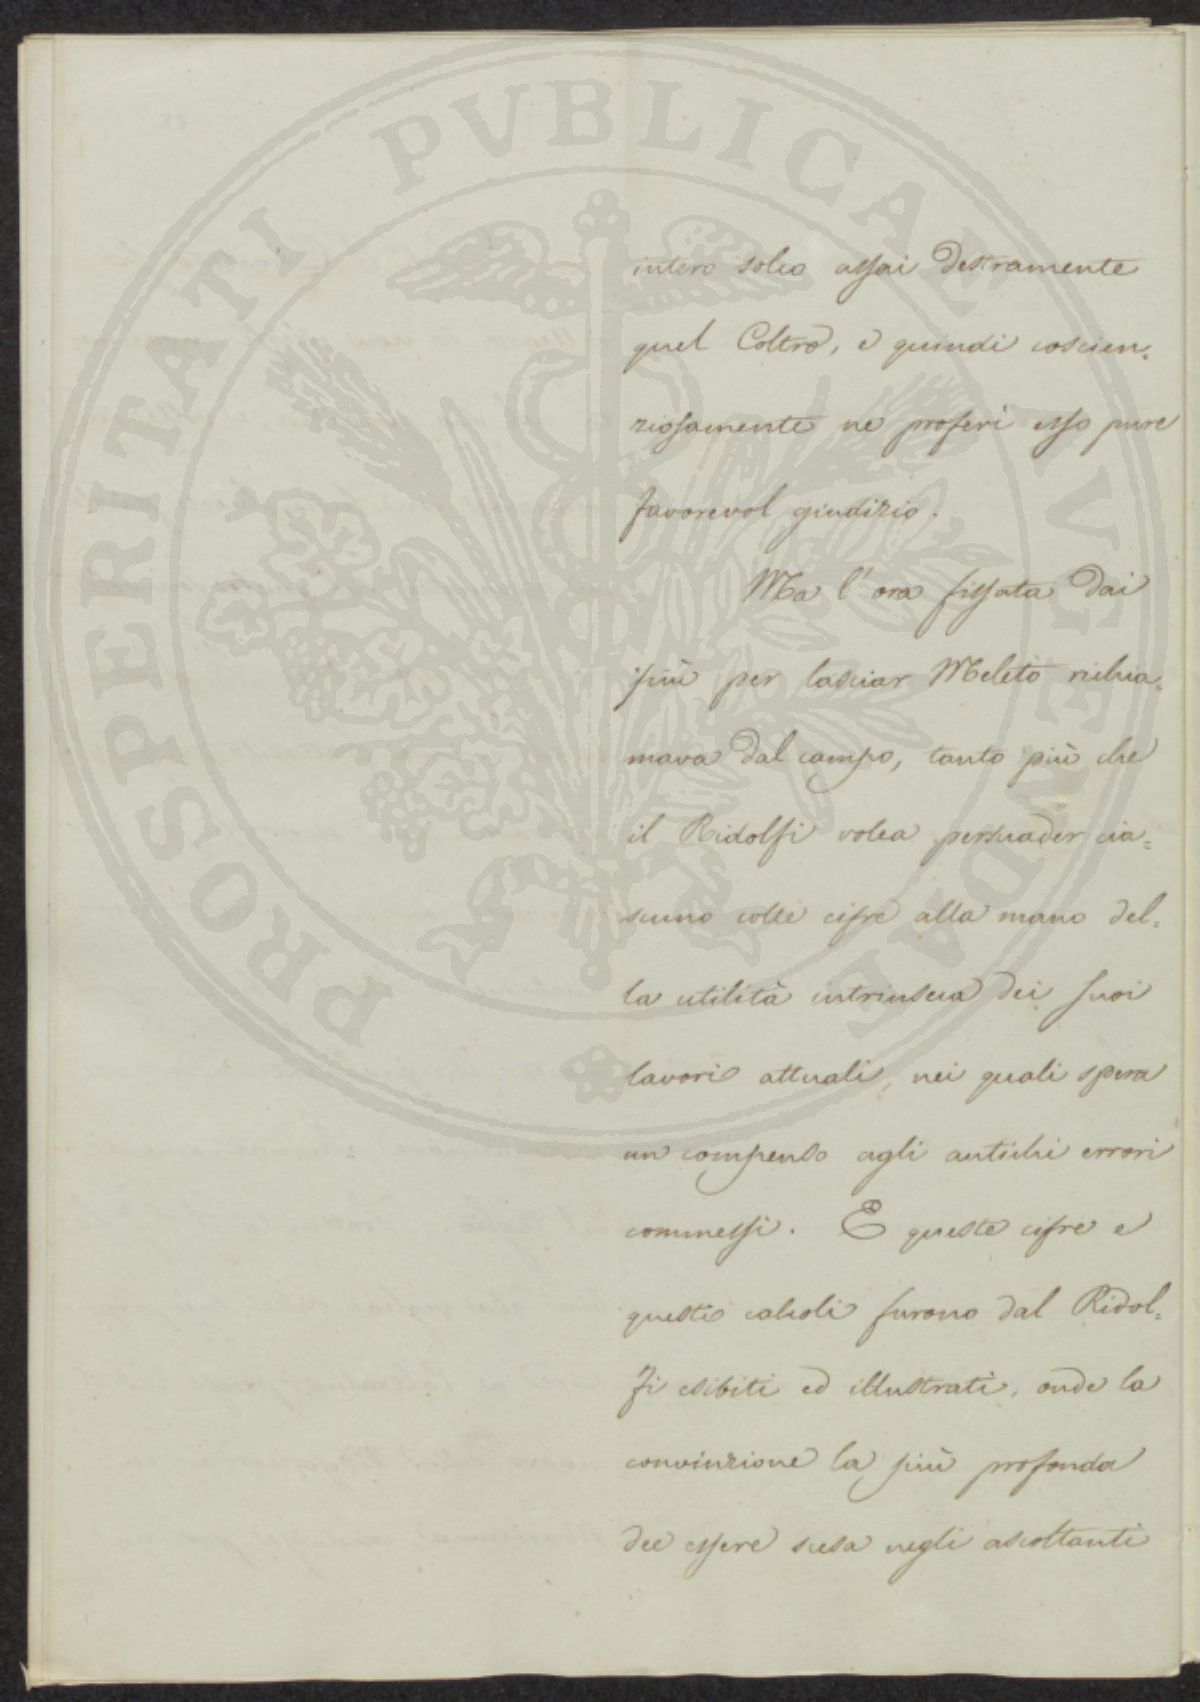 PROSPERITATI PVBLICAE AVGENDAE
intero solco assai destramente
quel Coltro, e quindi coscien=
ziosamente ne proferì esso pure
favorevol giudizio.
Ma l'ora fissata dai
più per lasciar Meleto richia=
mava dal campo, tanto più che
il Ridolfi volea persuader cia=
scuno colle cifre alla mano del=
la utilità intrinseca dei suoi
lavori attuali, nei quali spera
un compenso agli antichi errori
commessi. E queste cifre e
questi calcoli furono dal Ridol=
fi esibiti ed illustrati, onde la
convinzione la più profonda
dee essere scesa negli ascoltanti